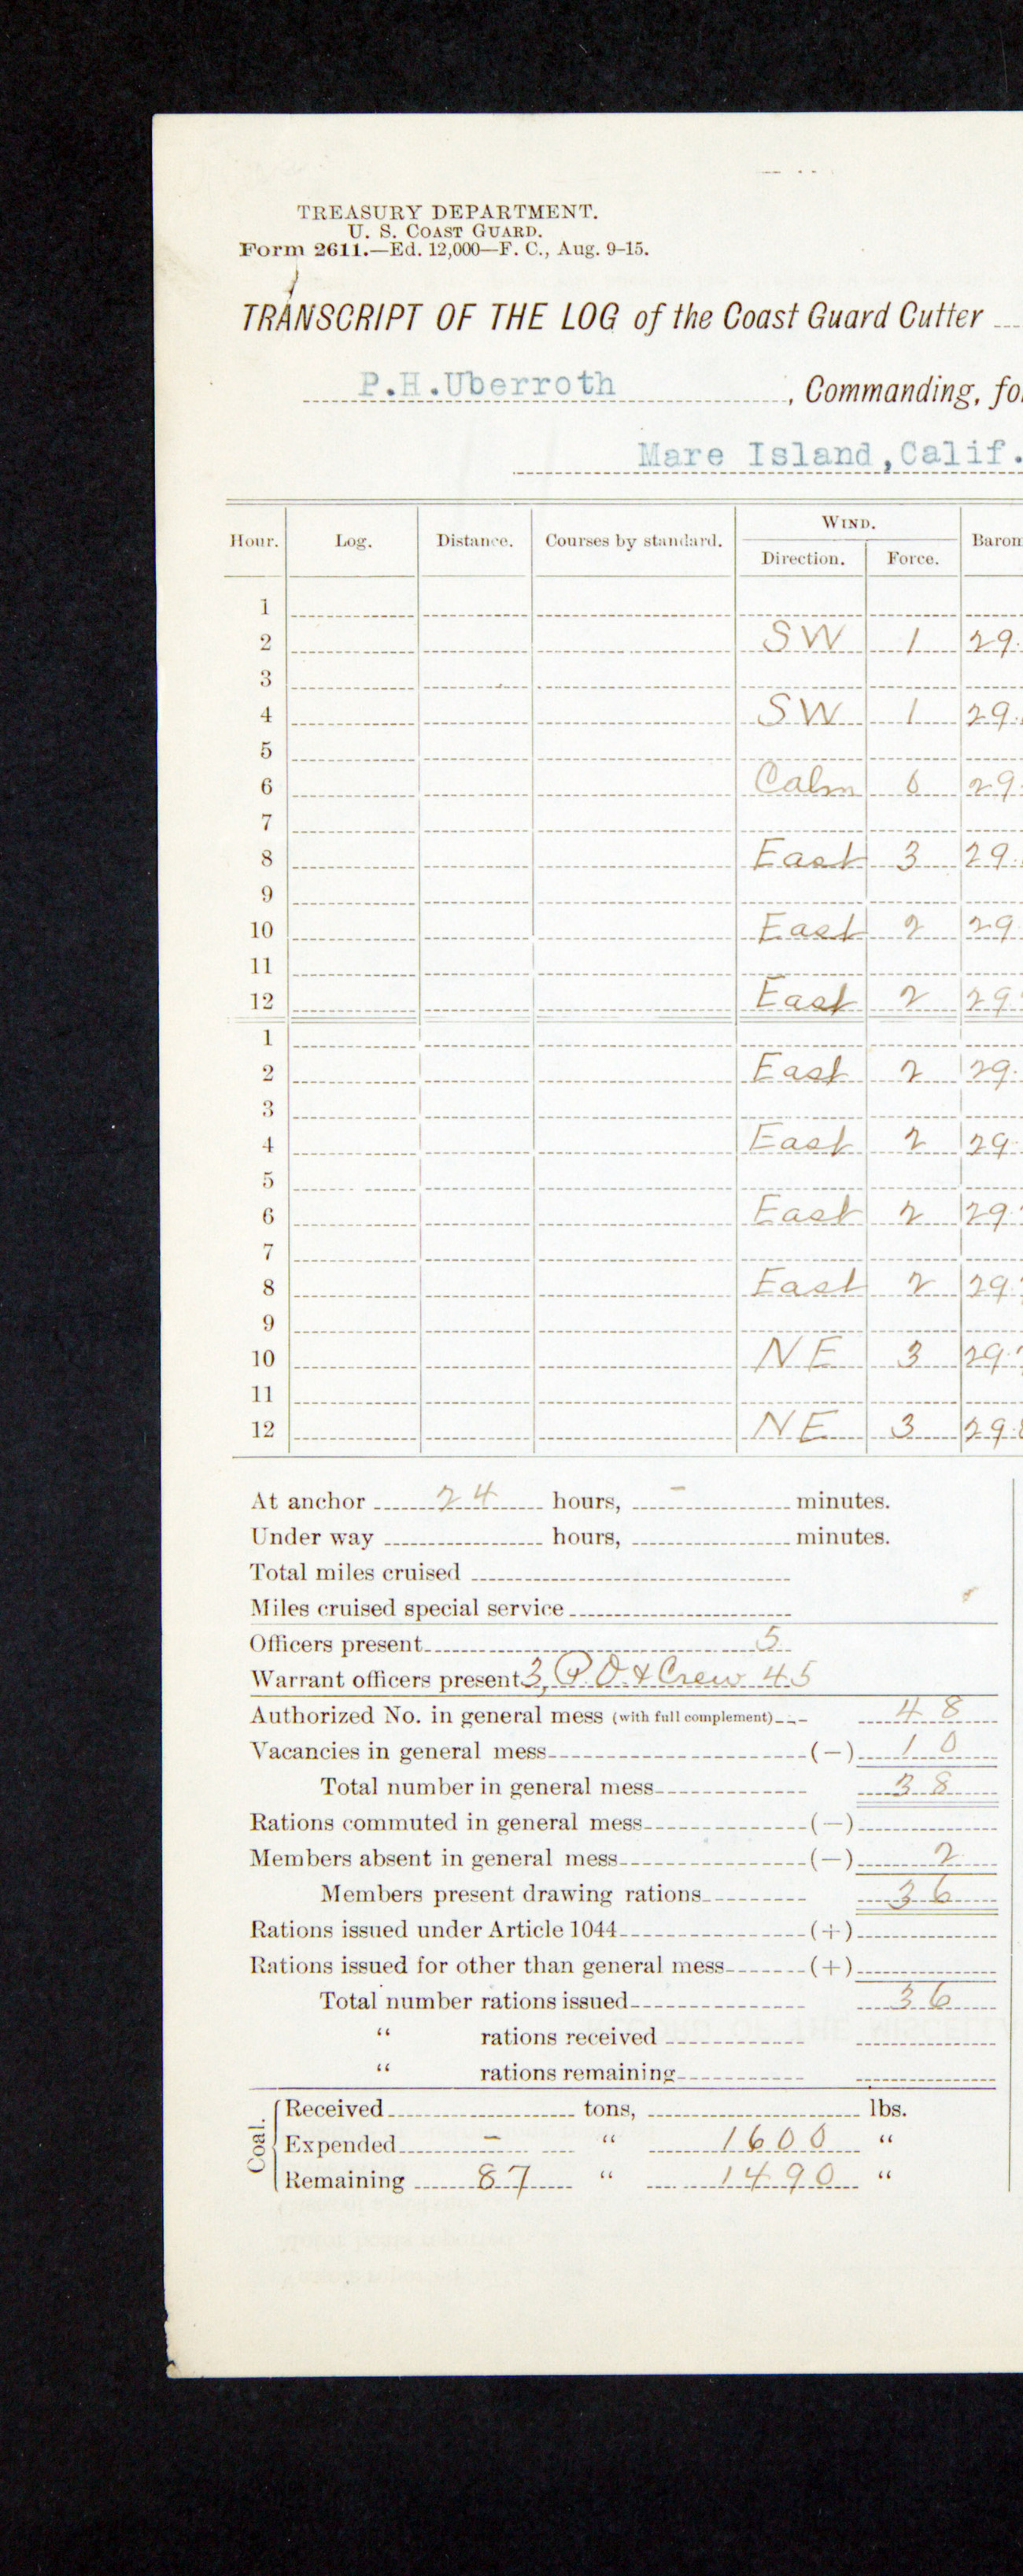 TREASURY DEPARTMENT.
U. S. COAST GUARD.
Form 2611.—Ed. 12,000—F. C., Aug. 9-15.
TRANSCRIPT OF THE LOG of the Coast Guard Cutter
P.H.Uberroth, Commanding, fo
Mare Island, Calif.
Hour. Log. Distance. Courses by standard. WIND. Direction. Force. Baron
1
2 SW 1 29.
3
4 SW 1 29.
5
6 Calm 0 29.
7
8 East 3 29.
9
10 East 2 29
11
12 East 2 29
1
2 East 2 29.
3
4 East 2 29.
5
6 East 2 29.
7
8 East 2 29.
9
10 NE 3 29.
11
12 NE 3 29.
At anchor 24 hours, - minutes.
Under way hours, minutes.
Total miles cruised
Miles cruised special service
Officers present 5
Warrant officers present 3, P.O. & Crew 45
Authorized No. in general mess (with full complement) 48
Vacancies in general mess (—) 10
Total number in general mess 38
Rations commuted in general mess (—)
Members absent in general mess (—) 2
Members present drawing rations 36
Rations issued under Article 1044 (+)
Rations issued for other than general mess (+)
Total number rations issued 36
" rations received
" rations remaining
Coal. Received tons, lbs.
Expended - " 1600 "
Remaining 87 " 1490 "